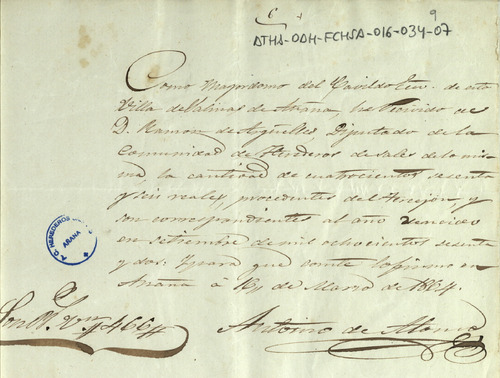 6
9
ATHA-ODH-FCHSA-016-034-07
Como Mayordomo del Cavildo Ecco. de esta
Villa de Salinas de Añana, he recivido de
D. Ramon de Argüelles, Diputado de la
Comunidad de Herederos de Sales de la mis-
ma, la cantidad de cuatrocientos sesenta
y seis reales, procedentes del
son correspondientes al año vencido
en setiembre de mil ochocientos sesenta
y dos. Y para que conste lo firmo en
Añana á 16 de Marzo de 1864.
Son Rs. Vn. 466
Antonio de
T. O. HEREDEROS
ARANA